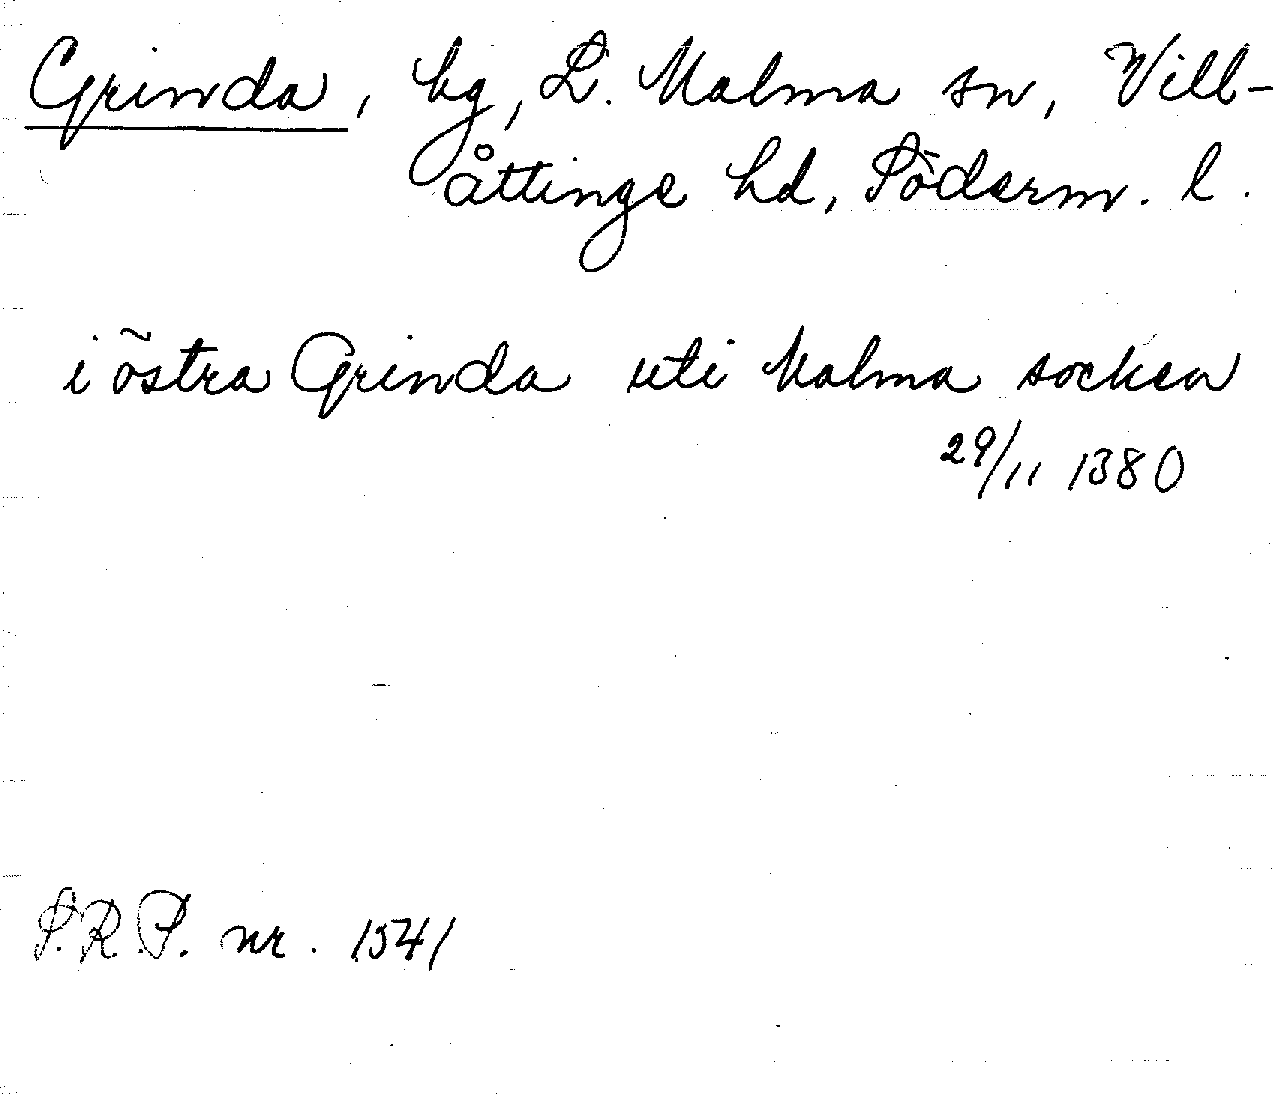 Grinda, by, L. Malma sn, Vill-
åttinge hd, Söderm. l.
i östra Grinda uti Malma socken
29/11 1380
S.R.P. nr. 1541